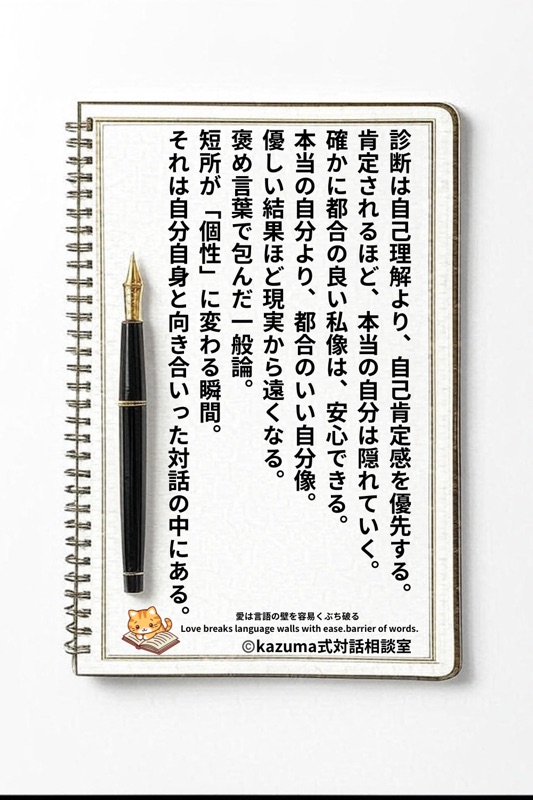 診断は自己理解より、自己肯定感を優先する。
肯定されるほど、本当の自分は隠れていく。
確かに都合の良い私像は、安心できる。
本当の自分より、都合のいい自分像。
優しい結果ほど現実から遠くなる。
褒め言葉で包んだ一般論。
短所が「個性」に変わる瞬間。
それは自分自身と向き合いった対話の中にある。
愛は言語の壁を容易くぶち破る
Love breaks language walls with ease.barrier of words.
©kazuma式対話相談室